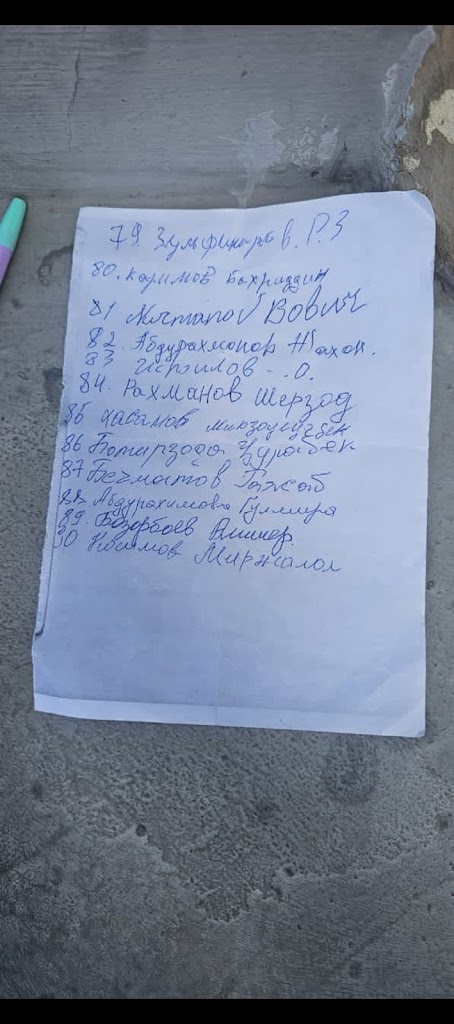 79. Зулфикаров. Р.З
80. Каримов Бахриддин
81 Вович
82. Абдурахмонов Жахон.
83 Исроилов - . О.
84. Рахманов Шерзод
85 Хасанов
86 Ботирзода Зурабек
87 Бекматов Ражаб
88 Абдурахимова Гулмира
89. Бозорбоев Алишер.
90 Миржалол